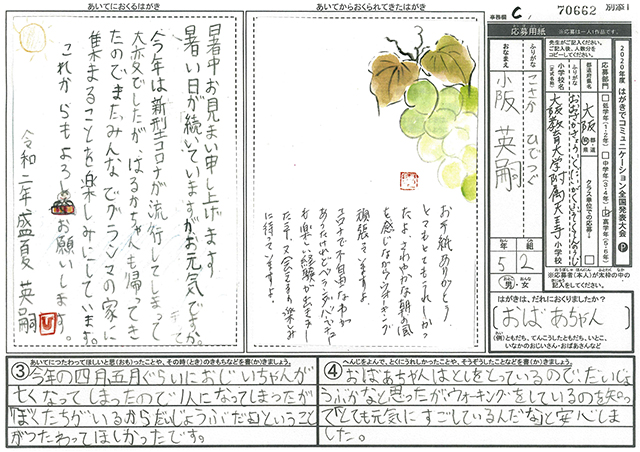 あいてにおくるはがき
暑中お見まい申し上げます
暑い日が続いていますがお元気ですか。
今年は新型コロナが流行してしまって
大変でしたが、はるかちゃんも帰ってき
たのでまたみんなでグランマの家に
集まることを楽しみにしています。
これからもよろしくお願いします。
令和二年盛夏 英嗣
あいてからおくられてきたはがき
お手紙ありがとう
とてもとてもうれしかっ
たよ。さわやかな朝の風
を感じながらウォーキング
頑張っていますよ。
コロナで不自由なわが
お楽しい経験が出来ま
に待っていますよ。
事務欄
C
70662
別添1
応募用紙
※応募は一人1作品です。
先生がご記入ください。
ご記入後、人数分を
コピーしてください。
2020年度 はがきでコミュニケーション全国発表大会 P
応募部門
低学年(1・2年)
中学年(3・4年)
高学年(5・6年)
都道府県名
大阪
都・道
府・県
クラス単位での応募
小学校名
(正式名称)
大阪教育大学附属天王寺小学校
ふりがな
こさか ひでつぐ
おなまえ
小阪 英嗣
年
5
組
2
男・女
※応募者(本人)が太枠の中の
記入をしてください。
はがきは、だれにおくりましたか?
おばあちゃん
(例)ともだち、てんこうしたともだち、いとこ、
いなかのおじいさん・おばあさんなど
あいてにつたわってほしいと思(おも)ったことや、その時(とき)のきもちなどを書(か)きましょう。
③今年の四月、五月ぐらいにおじいちゃんが
亡くなってしまったので1人になってしまったが
「ぼくたちがいるからだいじょうぶだよ」ということ
がつたわってほしかったです。
へんじをよんで、とくにうれしかったことや、そうぞうしたことなどを書(か)きましょう。
④おばあちゃんはとしをとっているので、だいじょ
うぶかなと思ったがウォーキングをしているのを知っ
て「とても元気にすごしているんだな」と安心しま
した。